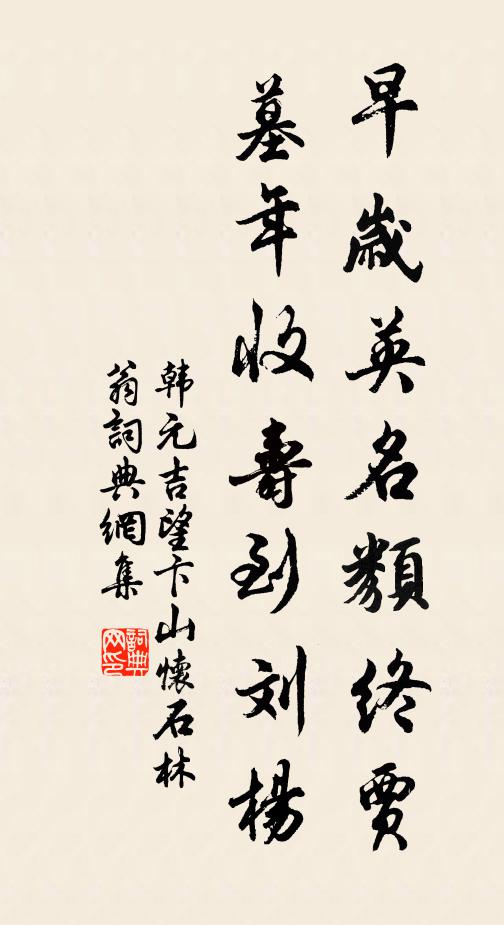 早歲英名類終賈
墓年收壽到刘楊
韩元吉望卞山懷石林
翁詞典網集
詞典网印